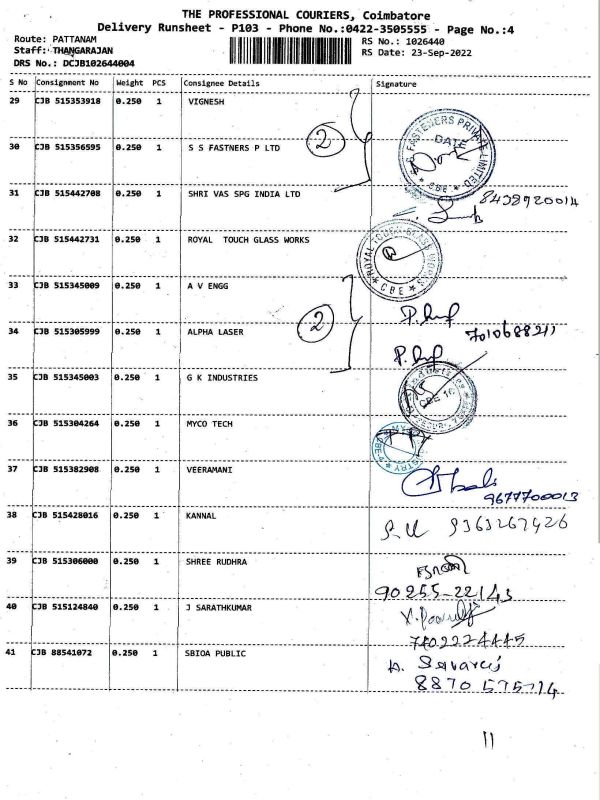 THE PROFESSIONAL COURIERS, Coimbatore
Delivery Runsheet - P103 - Phone No.:0422-3505555 - Page No.:4
Route: PATTANAM RS No.: 1026440
Staff: THANGARAJAN RS Date: 23-Sep-2022
DRS No.: DCJB102644004
S No Consignment No Weight PCS Consignee Details Signature
29 CJB 515353918 0.250 1 VIGNESH
30 CJB 515356595 0.250 1 S S FASTNERS P LTD 2 FASTENERS PRIVATE LIMITED DATE CBE
31 CJB 515442708 0.250 1 SHRI VAS SPG INDIA LTD 8438920014
32 CJB 515442731 0.250 1 ROYAL TOUCH GLASS WORKS ROYAL TOUCH GLASS WORKS CBE
33 CJB 515345009 0.250 1 A V ENGG
34 CJB 515305999 0.250 1 ALPHA LASER 2 7010688211
35 CJB 515345003 0.250 1 G K INDUSTRIES
36 CJB 515304264 0.250 1 MYCO TECH
37 CJB 515382908 0.250 1 VEERAMANI 9677700013
38 CJB 515428016 0.250 1 KANNAL 9363267426
39 CJB 515306000 0.250 1 SHREE RUDHRA
90255-22143
40 CJB 515124840 0.250 1 J SARATHKUMAR
7402224445
41 CJB 88541072 0.250 1 SBIOA PUBLIC
8870 575714
11